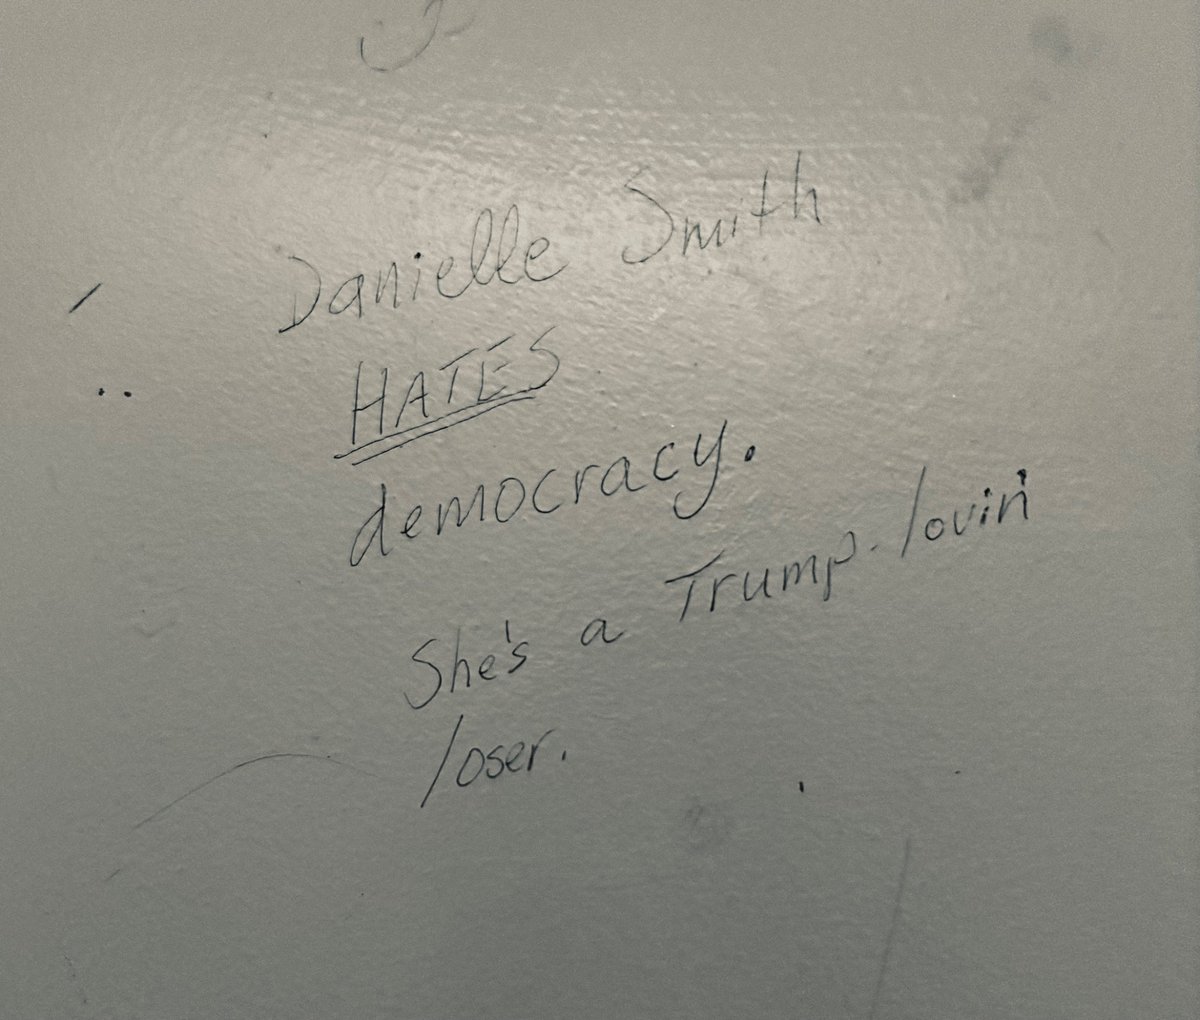 Danielle Smith
HATES
democracy.
She's a Trump-lovin'
loser.